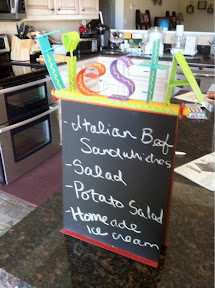 -Italian Beef
Sandwhiches
-Salad
-Potato Salad
-Homeade
Ice cream